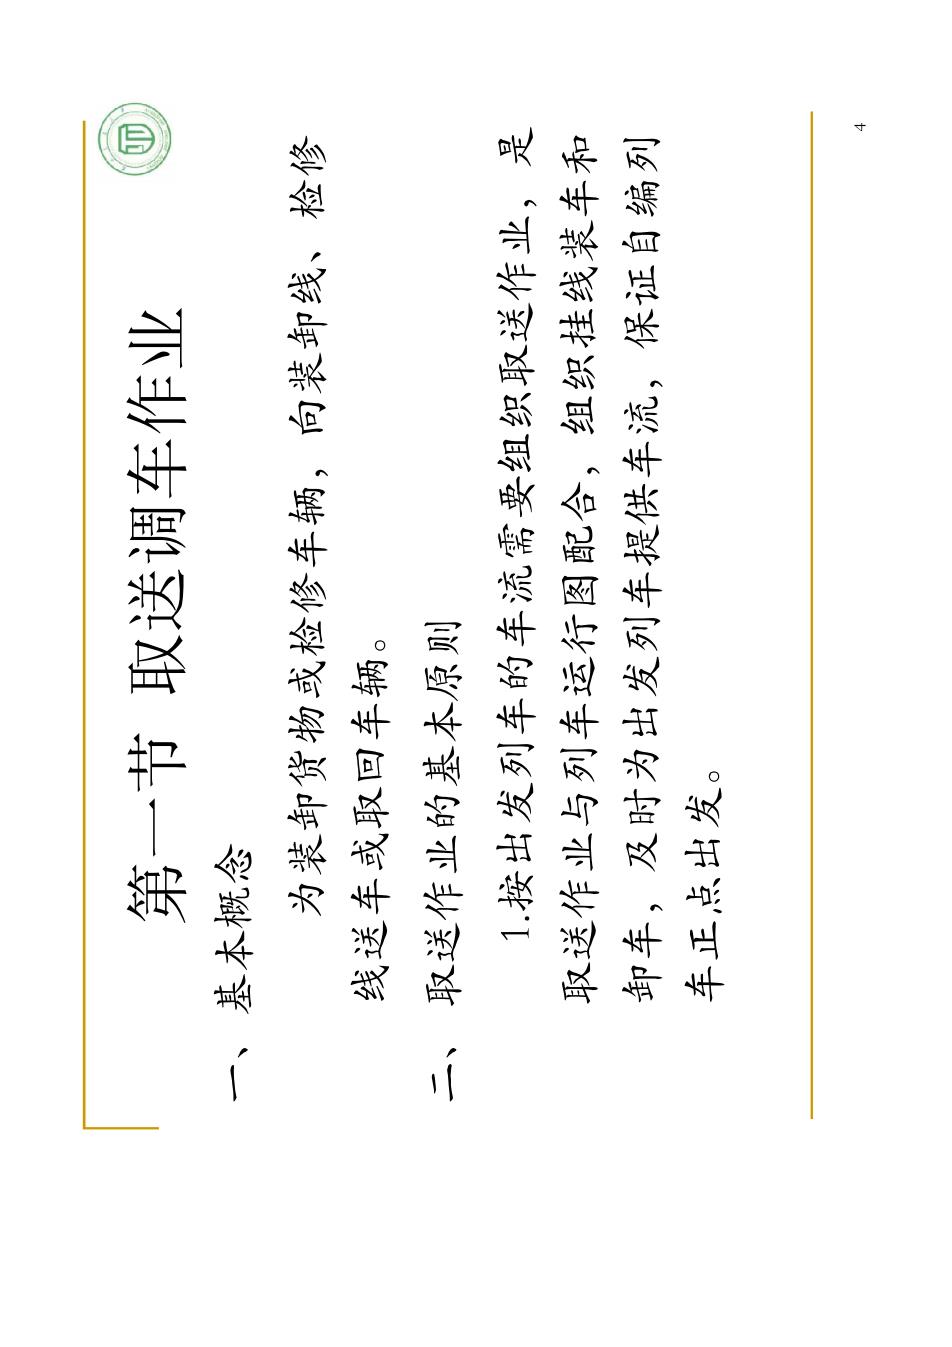 第一节 取送调车作业
一、 基本概念
为装卸货物或检修车辆，向装卸线、检修
线送车或取回车辆。
二、 取送作业的基本原则
1.按出发列车的车流需要组织取送作业，是
取送作业与列车运行图配合，组织挂线装车和
卸车，及时为出发列车提供车流，保证自编列
车正点出发。
4